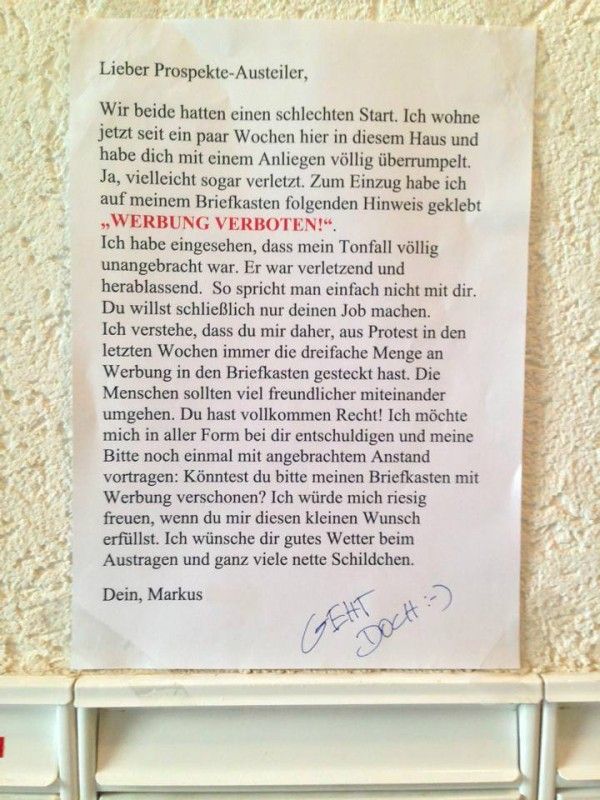 Lieber Prospekte-Austeiler,
Wir beide hatten einen schlechten Start. Ich wohne
jetzt seit ein paar Wochen hier in diesem Haus und
habe dich mit einem Anliegen völlig überrumpelt.
Ja, vielleicht sogar verletzt. Zum Einzug habe ich
auf meinem Briefkasten folgenden Hinweis geklebt
„WERBUNG VERBOTEN!“.
Ich habe eingesehen, dass mein Tonfall völlig
unangebracht war. Er war verletzend und
herablassend. So spricht man einfach nicht mit dir.
Du willst schließlich nur deinen Job machen.
Ich verstehe, dass du mir daher, aus Protest in den
letzten Wochen immer die dreifache Menge an
Werbung in den Briefkasten gesteckt hast. Die
Menschen sollten viel freundlicher miteinander
umgehen. Du hast vollkommen Recht! Ich möchte
mich in aller Form bei dir entschuldigen und meine
Bitte noch einmal mit angebrachtem Anstand
vortragen: Könntest du bitte meinen Briefkasten mit
Werbung verschonen? Ich würde mich riesig
freuen, wenn du mir diesen kleinen Wunsch
erfüllst. Ich wünsche dir gutes Wetter beim
Austragen und ganz viele nette Schildchen.
Dein, Markus
GEHT
DOCH :-)